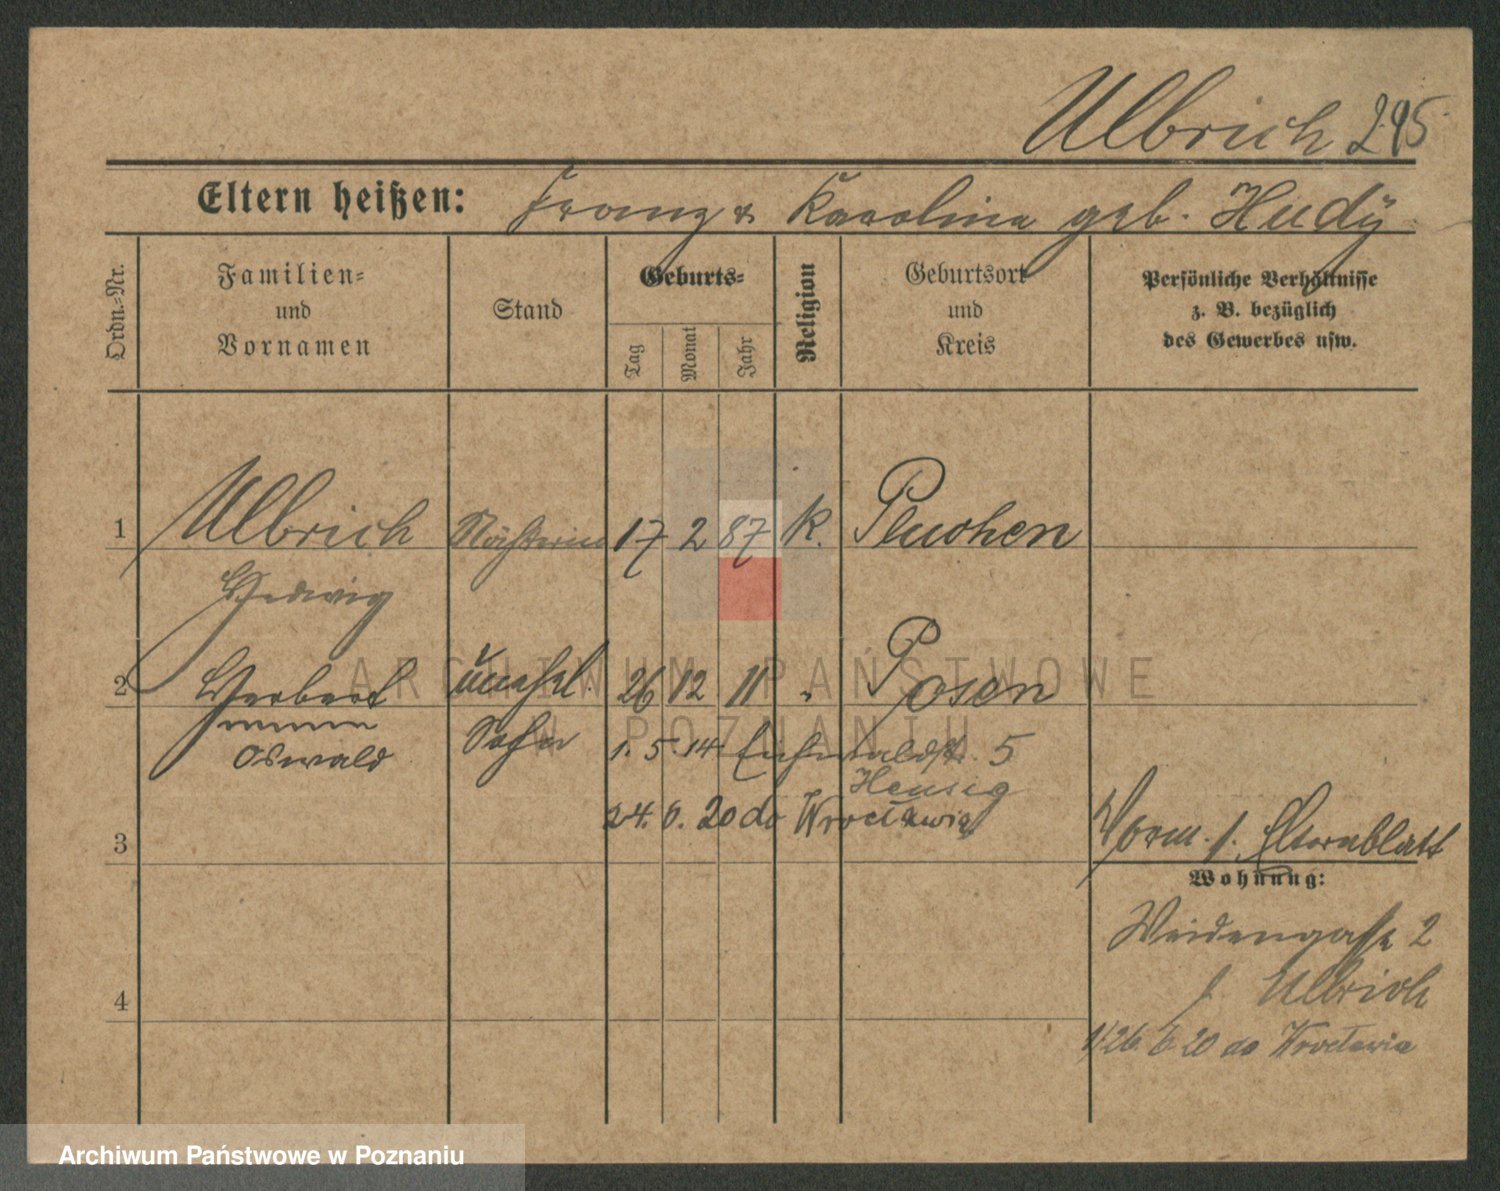 Ulbrich 295
Eltern heißen: Franz & Karolina geb. Hudÿ
Ordn.-Nr.
Familien-
und
Vornamen
Stand
Geburts-
Tag
Monat
Jahr
Religion
Geburtsort
und
Kreis
Persönliche Verhältnisse
z. B. bezüglich
des Gewerbes usw.
1 Ulbrich Näherin 17 2 87 K.
Hedwig
2 Herbert unehel. 26 12 11 " Posen
Oswald Sohn 1. 5. 14 Eichwaldstr. 5
24. 6. 20 do Wrocławia
3 Vorm. s. Elternblatt
Wohnung:
Weidengasse 2
s. Ulbrich
4
26 6 20 do Wrocławia
ARCHIWUM PAŃSTWOWE
W POZNANIU
Archiwum Państwowe w Poznaniu